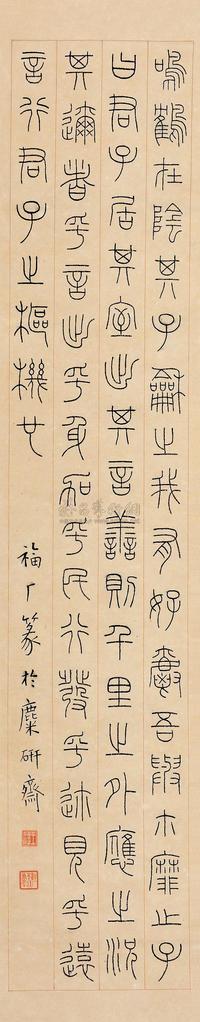 鳴鶴在陰其子龢之我有好爵吾與尒靡之子
曰君子居其室出其言善則千里之外應之況
其邇者乎言出乎身加乎民行發乎迩見乎遠
言行君子之樞機也
福厂篆於麋研齋